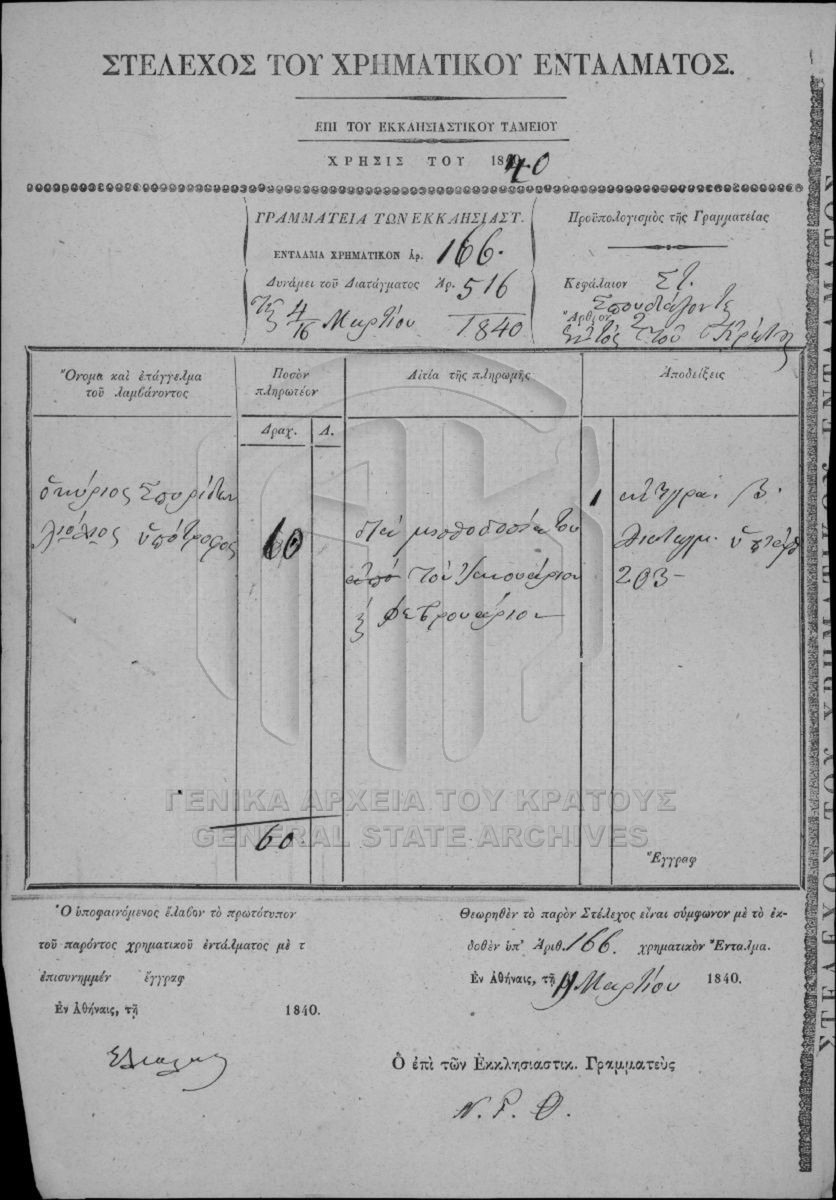 ΣΤΕΛΕΧΟΣ ΤΟΥ ΧΡΗΜΑΤΙΚΟΥ ΕΝΤΑΛΜΑΤΟΣ.
ΕΠΙ ΤΟΥ ΕΚΚΛΗΣΙΑΣΤΙΚΟΥ ΤΑΜΕΙΟΥ
ΧΡΗΣΙΣ ΤΟΥ 1840
ΓΡΑΜΜΑΤΕΙΑ ΤΩΝ ΕΚΚΛΗΣΙΑΣΤ.
ΕΝΤΑΛΜΑ ΧΡΗΜΑΤΙΚΟΝ Ἀρ. 166.
Δυνάμει τοῦ Διατάγματος Ἀρ. 516
4/16 Μαρτίου 1840
Προϋπολογισμὸς τῆς Γραμματείας
Κεφάλαιον ΣΤ.
Σπουδάζοντες
Ἄρθρον 2
ἐκτὸς τοῦ Κράτους
Ὄνομα καὶ ἐπάγγελμα
τοῦ λαμβάνοντος
Ποσὸν
πληρωτέον
Αἰτία τῆς πληρωμῆς
Ἀποδείξεις
Δραχ. Λ.
ὁ κύριος Σπυρίδων
ὑπότροφος
60
διὰ μισθοδοσίαν του
ἀπὸ τὸν Ἰανουάριον
Φεβρουάριον
1
Β.
Διαταγμ. ὑπ' ἀρ.
203
60
Ἔγγραφ
ΓΕΝΙΚΑ ΑΡΧΕΙΑ ΤΟΥ ΚΡΑΤΟΥΣ
GENERAL STATE ARCHIVES
Ὁ ὑποφαινόμενος ἔλαβον τὸ πρωτότυπον
τοῦ παρόντος χρηματικοῦ ἐντάλματος μὲ τ
ἐπισυνημμέν ἔγγραφ
Ἐν Ἀθήναις, τῇ 1840.
Θεωρηθὲν τὸ παρὸν Στέλεχος εἶναι σύμφωνον μὲ τὸ ἐκ-
δοθὲν ὑπ' Ἀριθ. 166. χρηματικὸν Ἔνταλμα.
Ἐν Ἀθήναις, τῇ 11 Μαρτίου 1840.
Ὁ ἐπὶ τῶν Ἐκκλησιαστικ. Γραμματεὺς
Ν. Γ. Θ.
ΣΤΕΛΕΧΟΣ ΤΟΥ ΧΡΗΜΑΤΙΚΟΥ ΕΝΤΑΛΜΑΤΟΣ